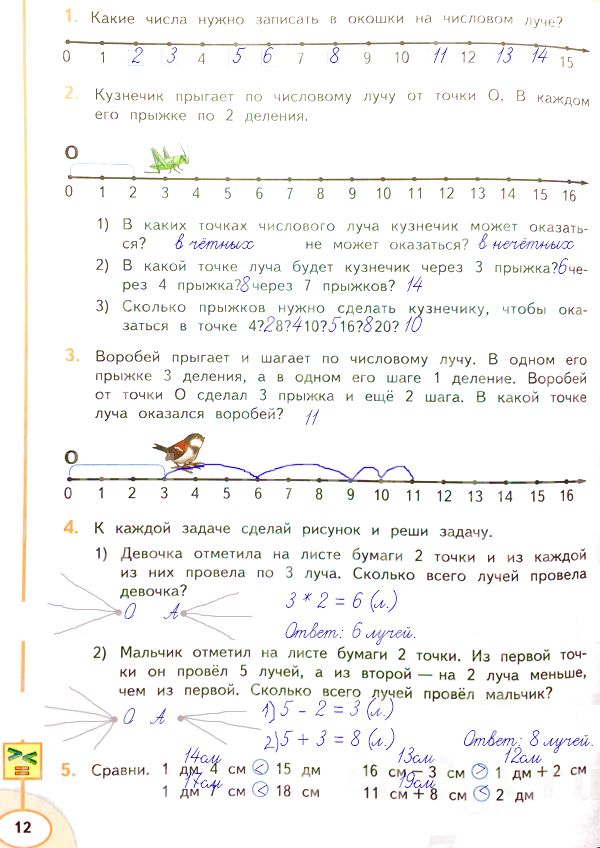 1. Какие числа нужно записать в окошки на числовом луче?
0 1 2 3 4 5 6 7 8 9 10 11 12 13 14 15
2. Кузнечик прыгает по числовому лучу от точки О. В каждом
его прыжке по 2 деления.
О
0 1 2 3 4 5 6 7 8 9 10 11 12 13 14 15 16
1) В каких точках числового луча кузнечик может оказать-
ся? в чётных не может оказаться? в нечётных
2) В какой точке луча будет кузнечик через 3 прыжка? 6 че-
рез 4 прыжка? 8 через 7 прыжков? 14
3) Сколько прыжков нужно сделать кузнечику, чтобы ока-
заться в точке 4? 2 8? 4 10? 5 16? 8 20? 10
3. Воробей прыгает и шагает по числовому лучу. В одном его
прыжке 3 деления, а в одном его шаге 1 деление. Воробей
от точки О сделал 3 прыжка и ещё 2 шага. В какой точке
луча оказался воробей? 11
О
0 1 2 3 4 5 6 7 8 9 10 11 12 13 14 15 16
4. К каждой задаче сделай рисунок и реши задачу.
1) Девочка отметила на листе бумаги 2 точки и из каждой
из них провела по 3 луча. Сколько всего лучей провела
девочка?
О А 3 * 2 = 6 (л.)
Ответ: 6 лучей.
2) Мальчик отметил на листе бумаги 2 точки. Из первой точ-
ки он провёл 5 лучей, а из второй — на 2 луча меньше,
чем из первой. Сколько всего лучей провёл мальчик?
О А 1) 5 - 2 = 3 (л.)
2) 5 + 3 = 8 (л.) Ответ: 8 лучей.
14см 13см 12см
5. Сравни. 1 дм 4 см < 15 дм 16 см − 3 см > 1 дм + 2 см
17см 19см
1 дм 7 см < 18 см 11 см + 8 см < 2 дм
12